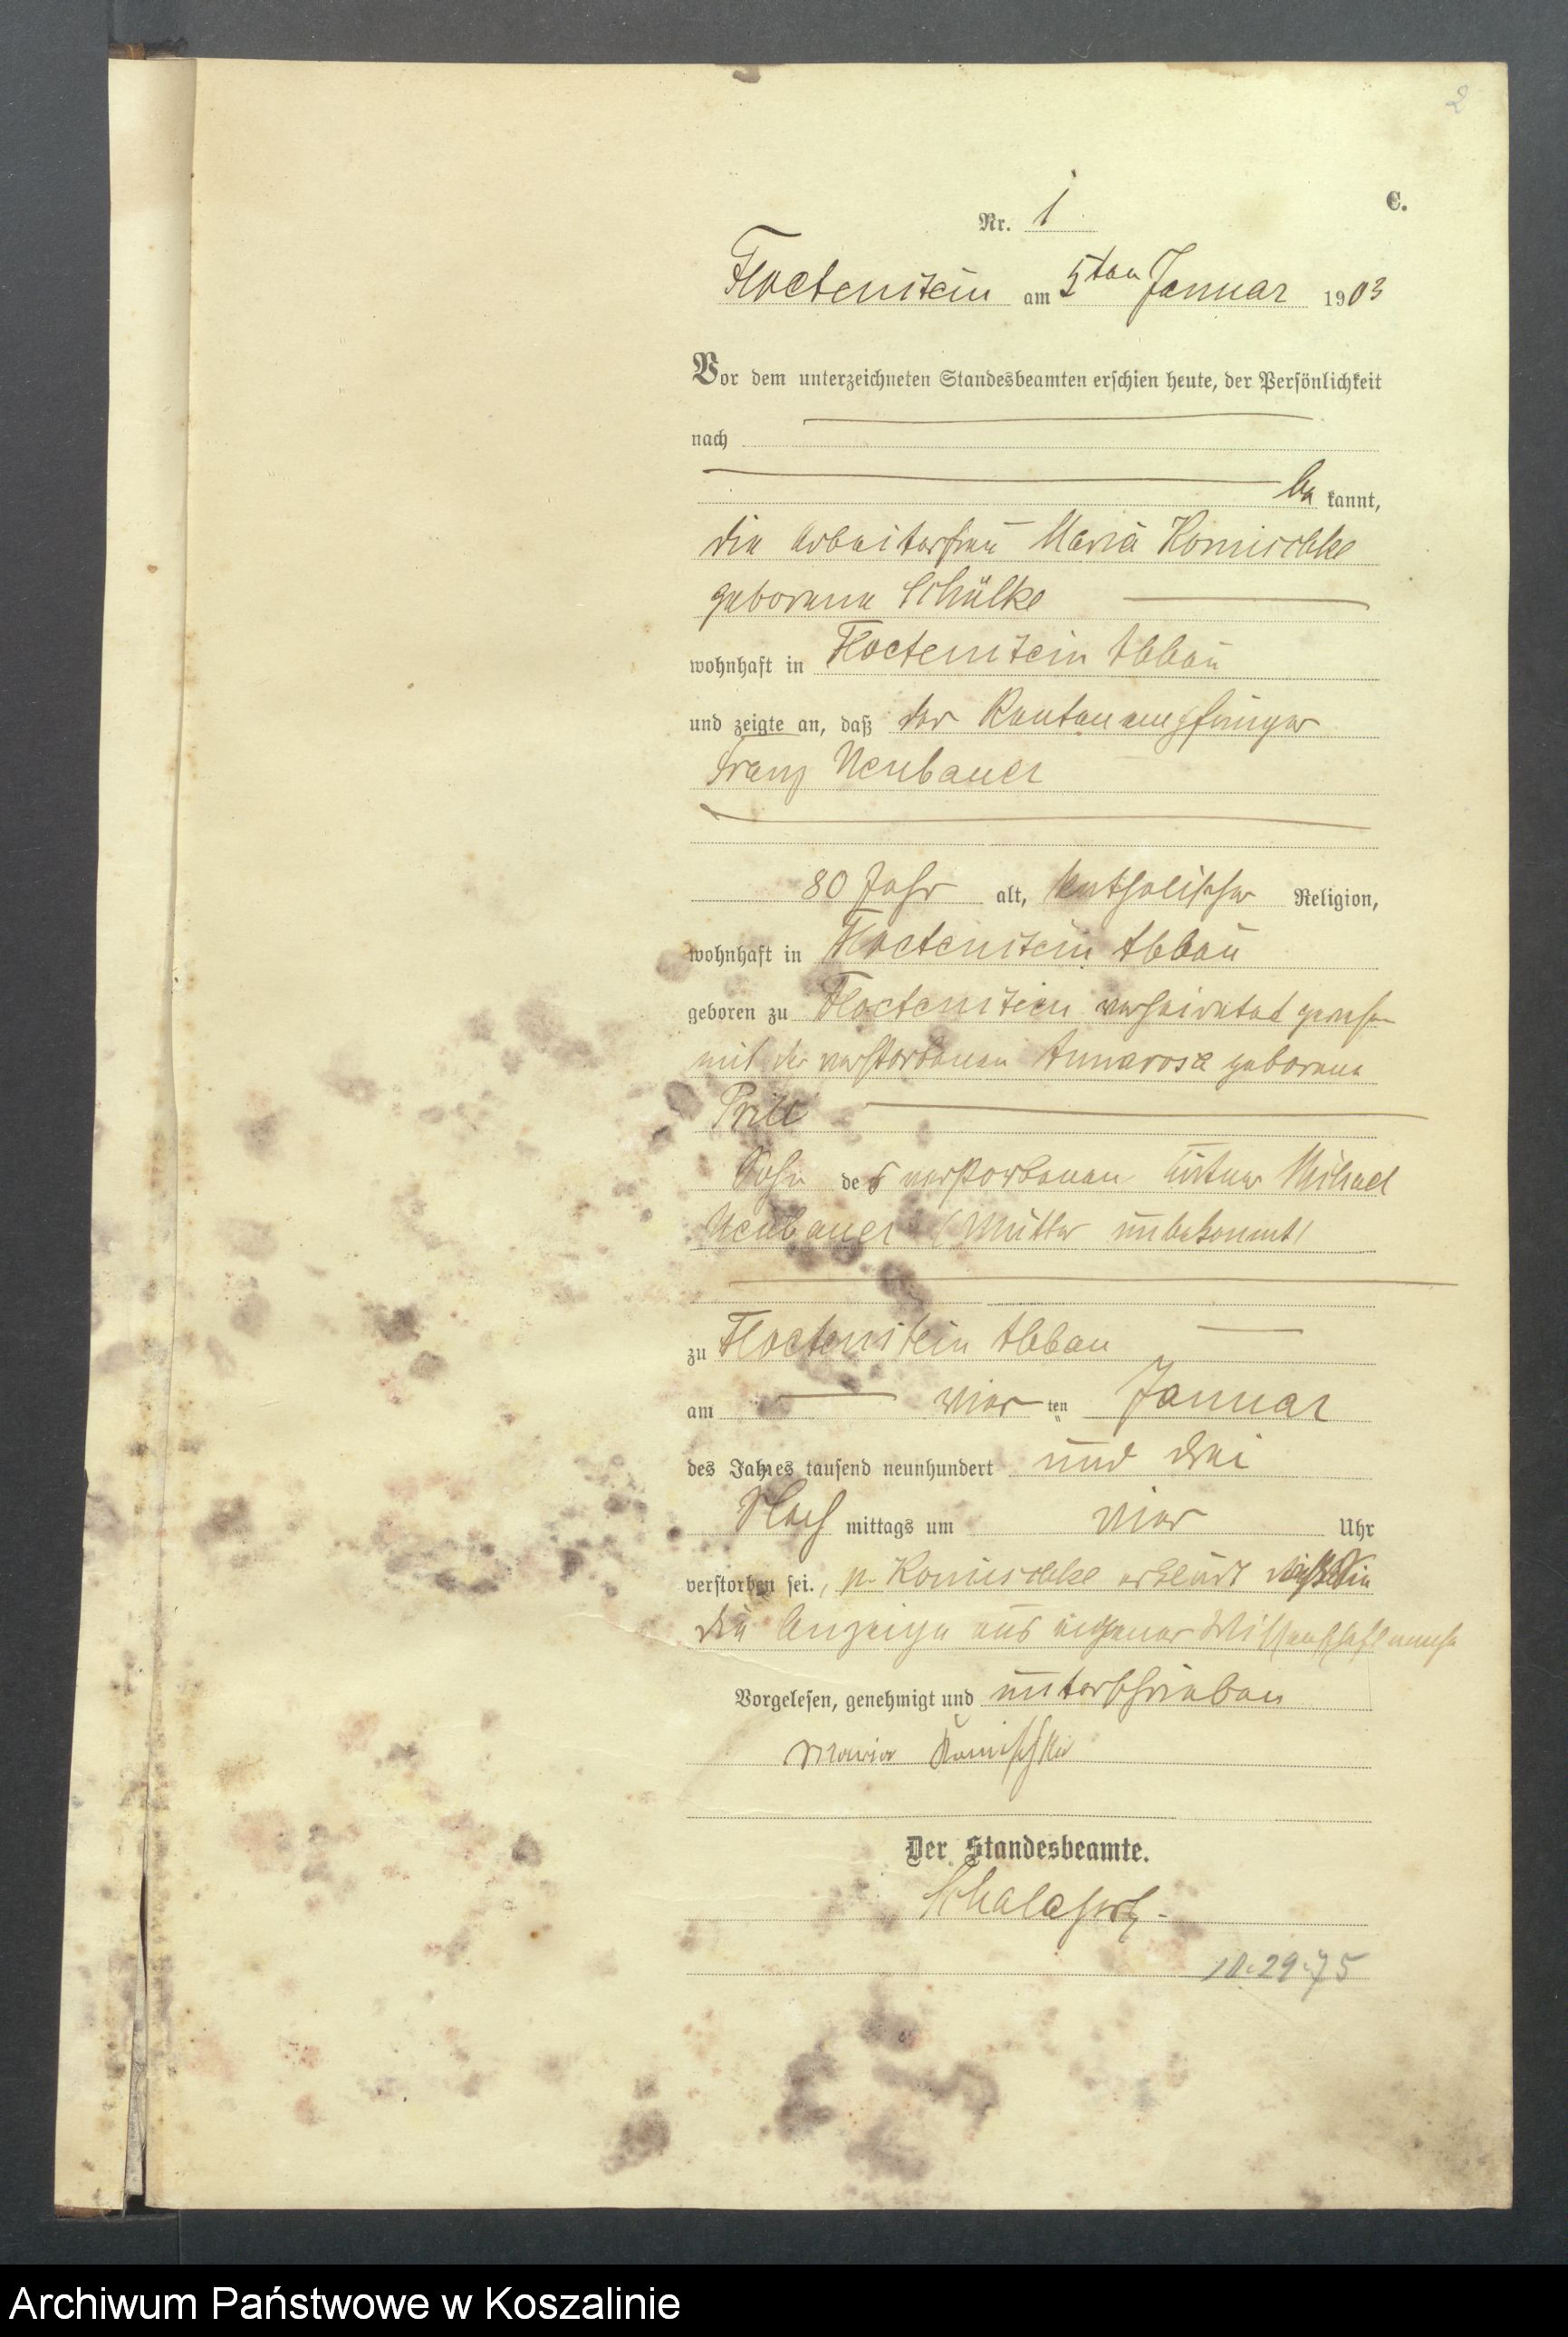 2
C.
Nr. 1
Floetenstein am 5ten Januar 1903
Vor dem unterzeichneten Standesbeamten erschien heute, der Persönlichkeit
nach
be kannt,
die Arbeiterfrau Maria Komischke
geborene Schülke
wohnhaft in Floetenstein Abbau
und zeigte an, daß der Rentenempfänger
Franz Neubauer
80 Jahr alt, katholischer Religion,
wohnhaft in Floetenstein Abbau
geboren zu Floetenstein verheiratet gewesen
mit der verstorbenen Annarosa geborene
Prill
Sohn des verstorbenen Michael
Neubauer (Mutter unbekannt)
zu Floetenstein Abbau
am vier ten Januar
des Jahres tausend neunhundert und drei
Nach mittags um vier Uhr
verstorben sei., p. Komischke erklärt
die Anzeige aus eigener Wissenschaft
Vorgelesen, genehmigt und unterschrieben
Maria Komischke
Der Standesbeamte.
10.29.75
Archiwum Państwowe w Koszalinie